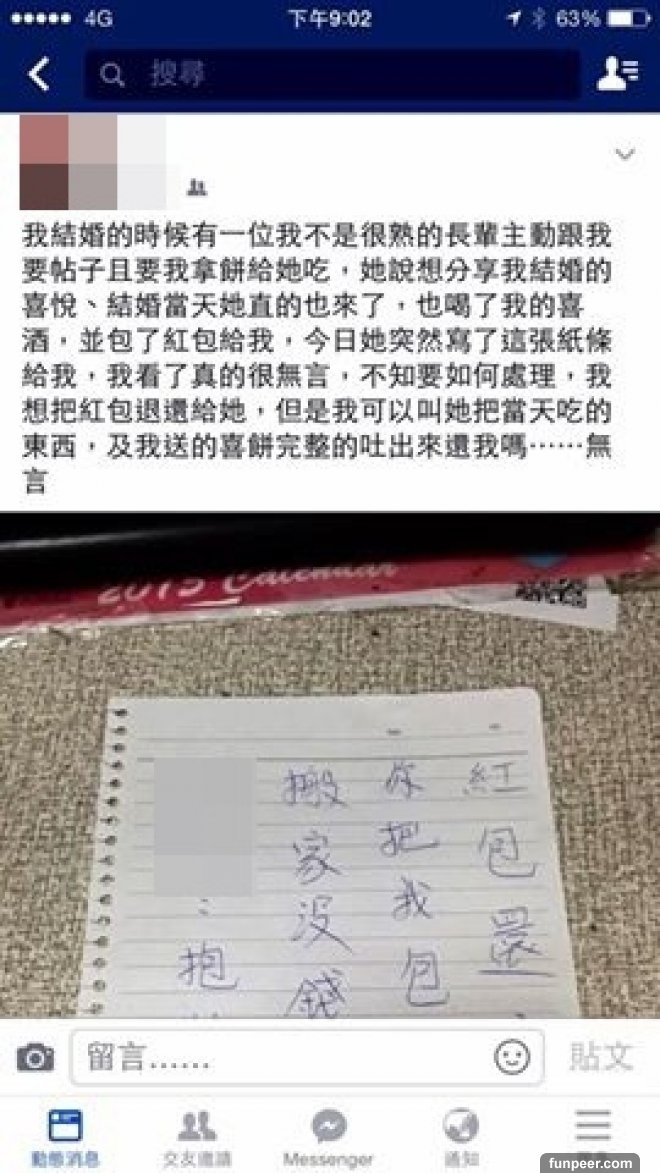 4G 下午9:02 63%
搜尋
我結婚的時候有一位我不是很熟的長輩主動跟我
要帖子且要我拿餅給她吃，她說想分享我結婚的
喜悅、結婚當天她直的也來了，也喝了我的喜
酒，並包了紅包給我，今日她突然寫了這張紙條
給我，我看了真的很無言，不知要如何處理，我
想把紅包退還給她，但是我可以叫她把當天吃的
東西，及我送的喜餅完整的吐出來還我嗎⋯⋯無
言
2015 Calendar
：抱
搬家没錢
你把我包
紅包還
留言...... 貼文
動態消息 交友邀請 Messenger 通知
funpeer.com